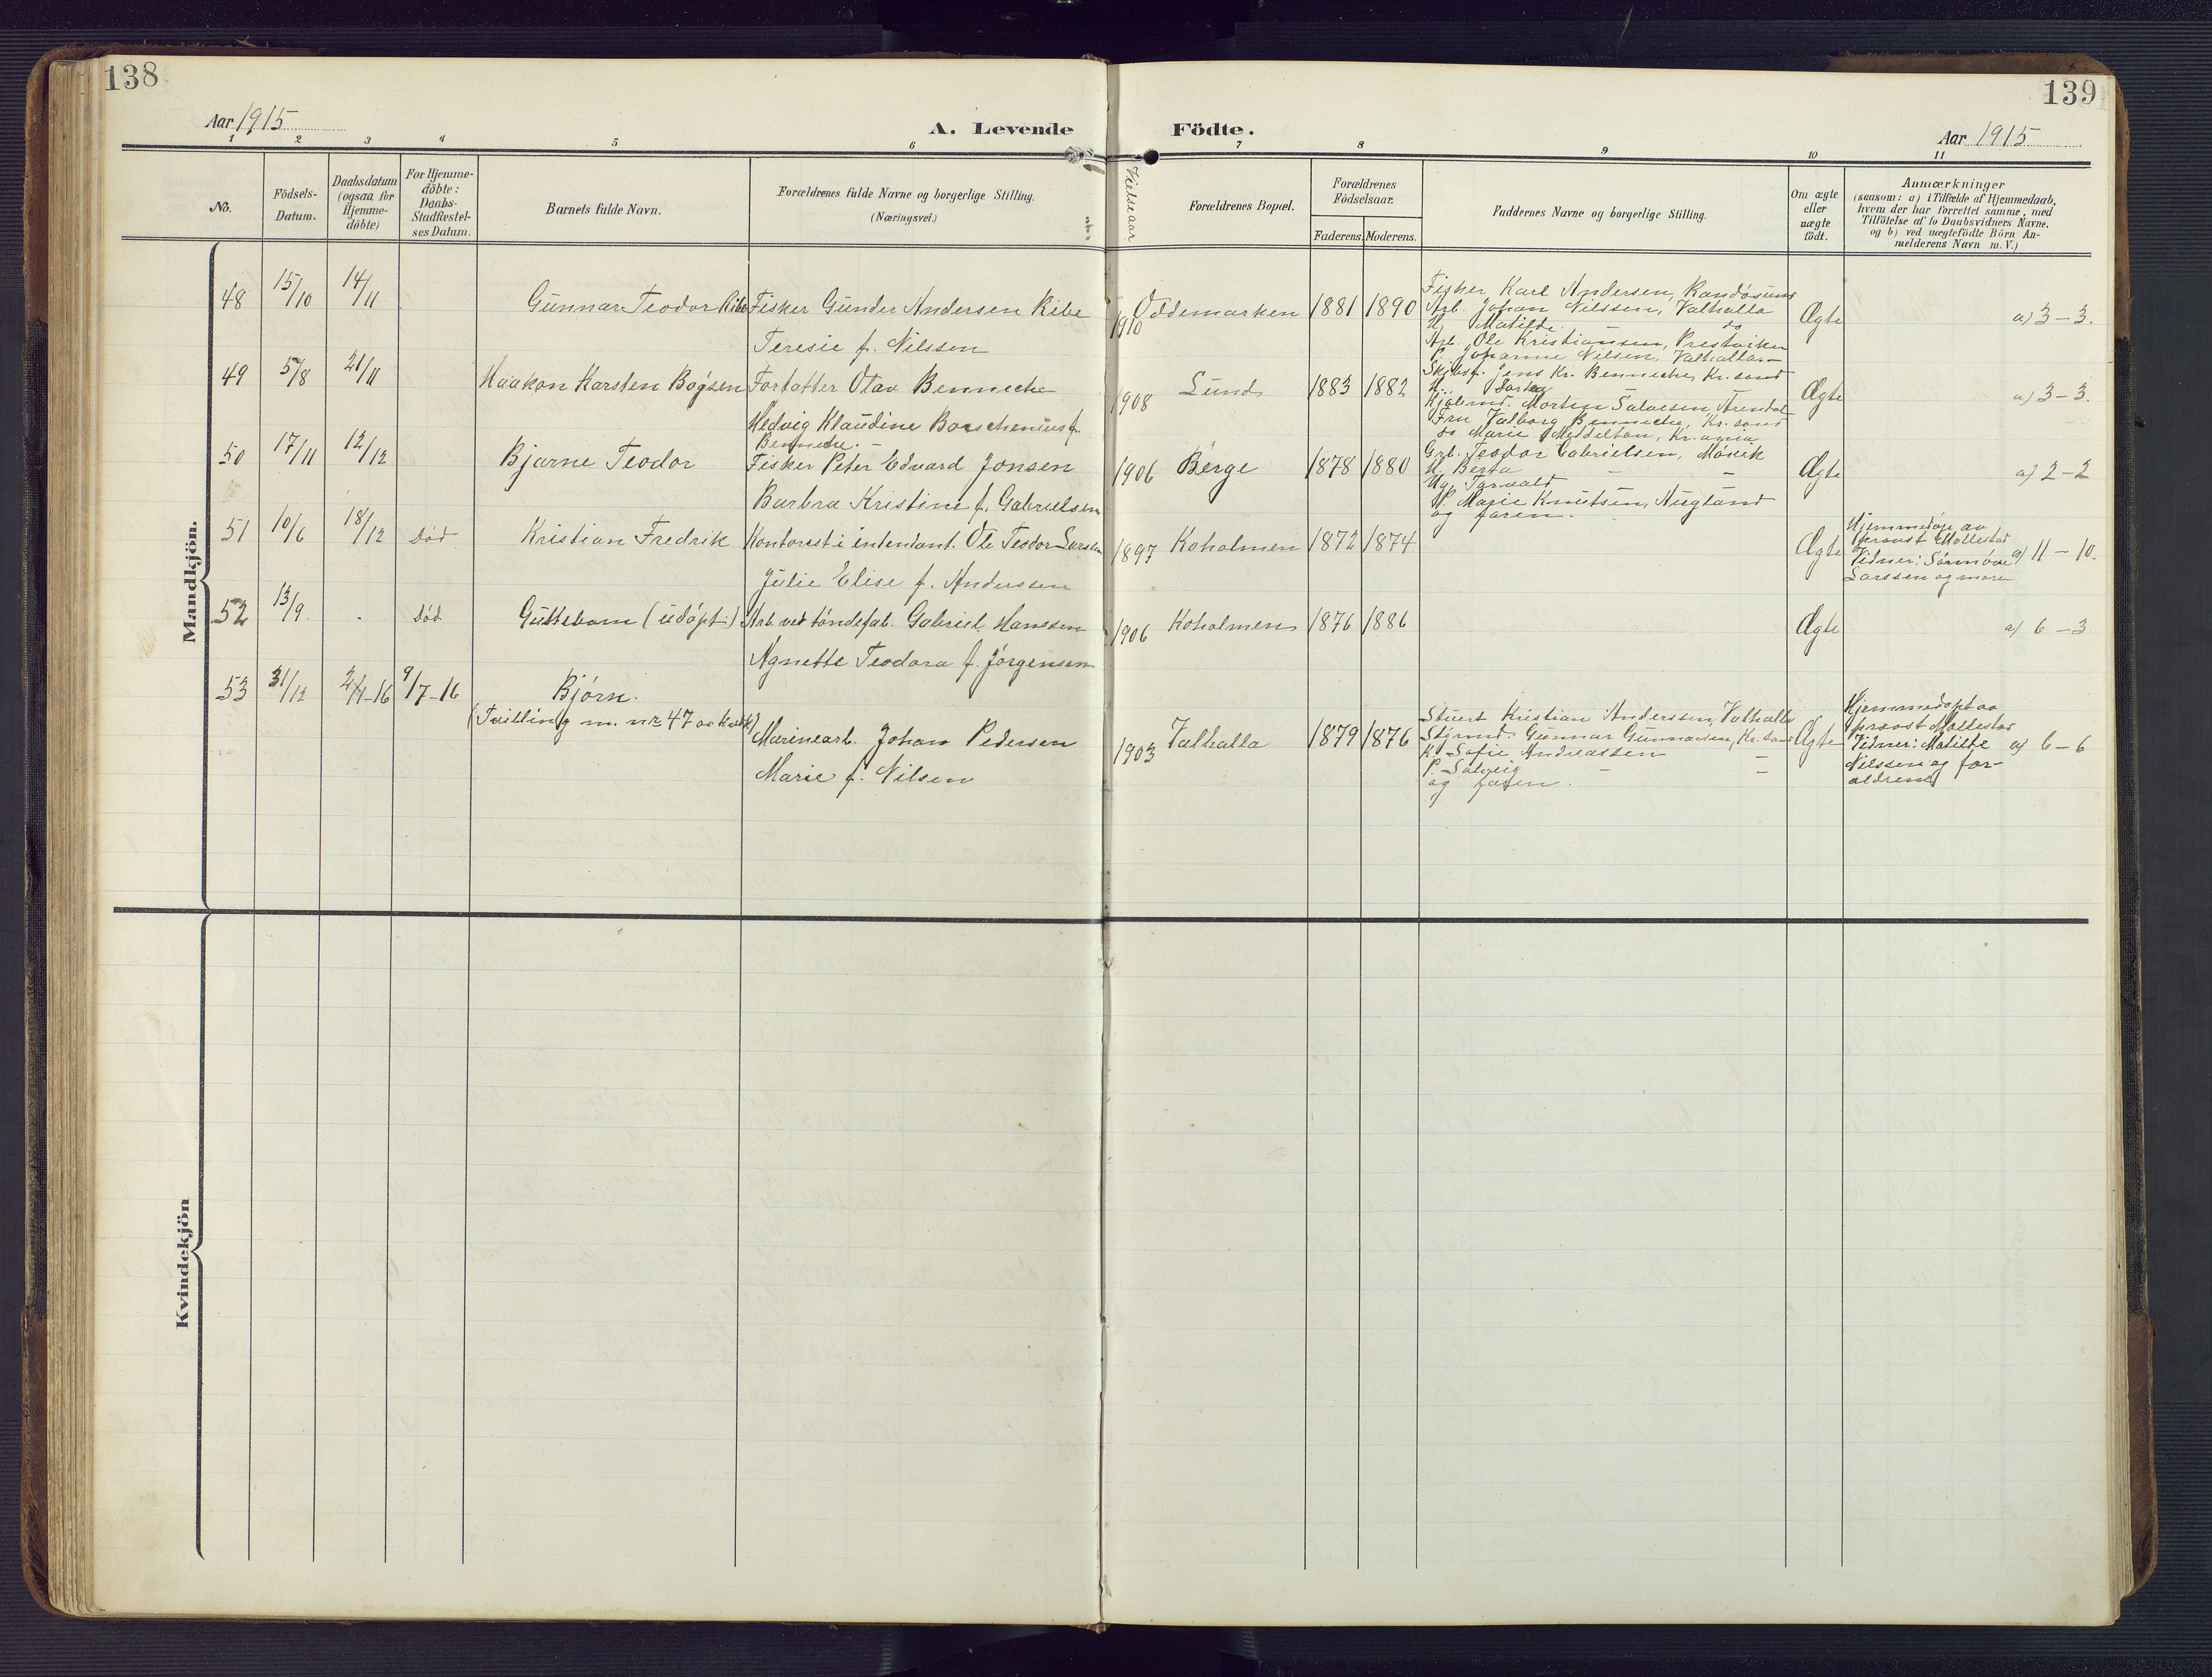 138
139
Aar 1915
A. Levende Födte.
Aar 1915
1 2 3 4 5 6 7 8 9 10 11
No.
Födsels-
Datum.
Daabsdatum
(ogsaa for
Hjemme-
döbte)
For Hjemme-
döbte:
Daabs-
Stadfæstel-
ses Datum.
Barnets fulde Navn.
Forældrenes fulde Navne og borgerlige Stilling.
(Næringsvei.)
Vielsesaar
Forældrenes Bopæl.
Forældrenes
Födselsaar.
Faderens. Moderens.
Faddernes Navne og borgerlige Stilling.
Om ægte
eller
uægte
födt.
Anmærkninger
(saasom: a) i Tilfælde af Hjemmedaab,
hvem der har forrettet samme, med
Tilföielse af to Daabsvidners Navne,
og b) ved uægtefödte Börn An-
melderens Navn m. V.)
Mandkjön.
48 15/10 14/11 Gunnar Teodor Ribe Fisker Gunder Andersen Ribe
Teresie f. Nilssen
1910 Oddemarken 1881 1890
Fisker Karl Andersen, Randøsund
Arb. Johan Nilssen, Valhalla
H. Matilde do
Arb. Ole Kristiansen, Prestviken
P. Johanne Nilsen, Valhalla
Ægte a) 3-3.
49 5/8 21/11 Haakon Karsten Bogsen Forfatter Olav Benneche
Hedvig Klaudine Borchenius f.
Benneche.
1908 Lund 1883 1882
Skibsf. Jens Kr. Benneche, Kr.sand
Kjøbmd. Morten Salvesen, Arendal
Fru Valborg Benneche, Kr.sand
do Marie Middelton, Kr.ania
Ægte a) 3-3.
50 17/11 12/12 Bjarne Teodor Fisker Peter Edvard Jonsen
Barbra Kristine f. Gabrielsen
1906 Berge 1878 1880
Grb. Teodor Gabrielsen, Møvik
H. Berta -
Ug. Torvald -
P. Marie Knutsen, Augland
og faren.
Ægte a) 2-2
51 10/6 18/12 Død Kristian Fredrik Kontorist i intendant. Ole Teodor Larsen
Julie Elise f. Anderssen
1897 Koholmen 1872 1874
Ægte
Hjemmedøpt av
provst Mollestad
Vidner:
Larssen og moren
a) 11-10.
52 13/9 - Død Guttebarn (udøpt) Arb. ved tøndefab. Gabriel Hanssen
Agnette Teodora f. Jørgensen
1906 Koholmen 1876 1886
Ægte a) 6-3
53 31/12 2/1-16 9/7-16 Bjørn.
(Tvilling m. nr 47 av kvkj)
Marinearb. Johan Pedersen
Marie f. Nilsen
1903 Valhalla 1879 1876
Stuert Kristian Anderssen, Valhalla
Styrmd. Gunnar Gunnarsen, Kr.sand
H. Sofie Andreassen -
P. Solveig - -
og faren.
Ægte
Hjemmedøpt av
provst Mollestad
Vidner: Matilde
Nilssen og for-
ældrene
a) 6-6
Kvindekjön